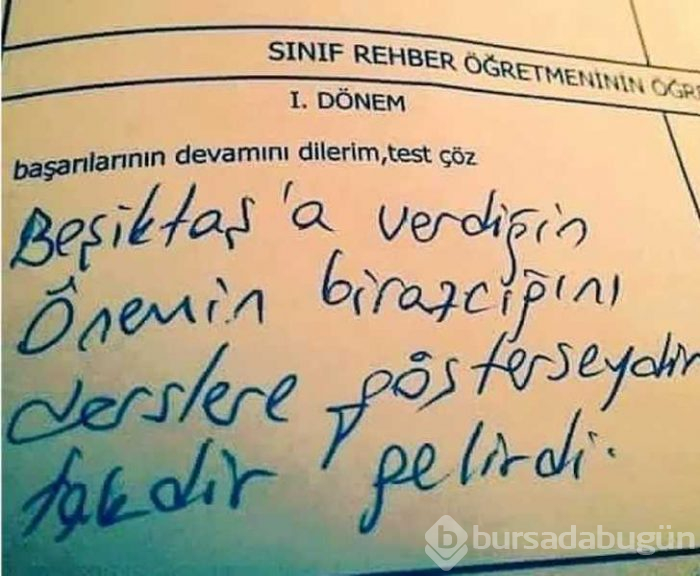 SINIF REHBER ÖĞRETMENİNİN ÖĞRE
I. DÖNEM
başarılarının devamını dilerim,test çöz
Beşiktaş'a verdiğin
Önemin birazcığını
derslere gösterseydin
takdir gelirdi.
bursadabugün